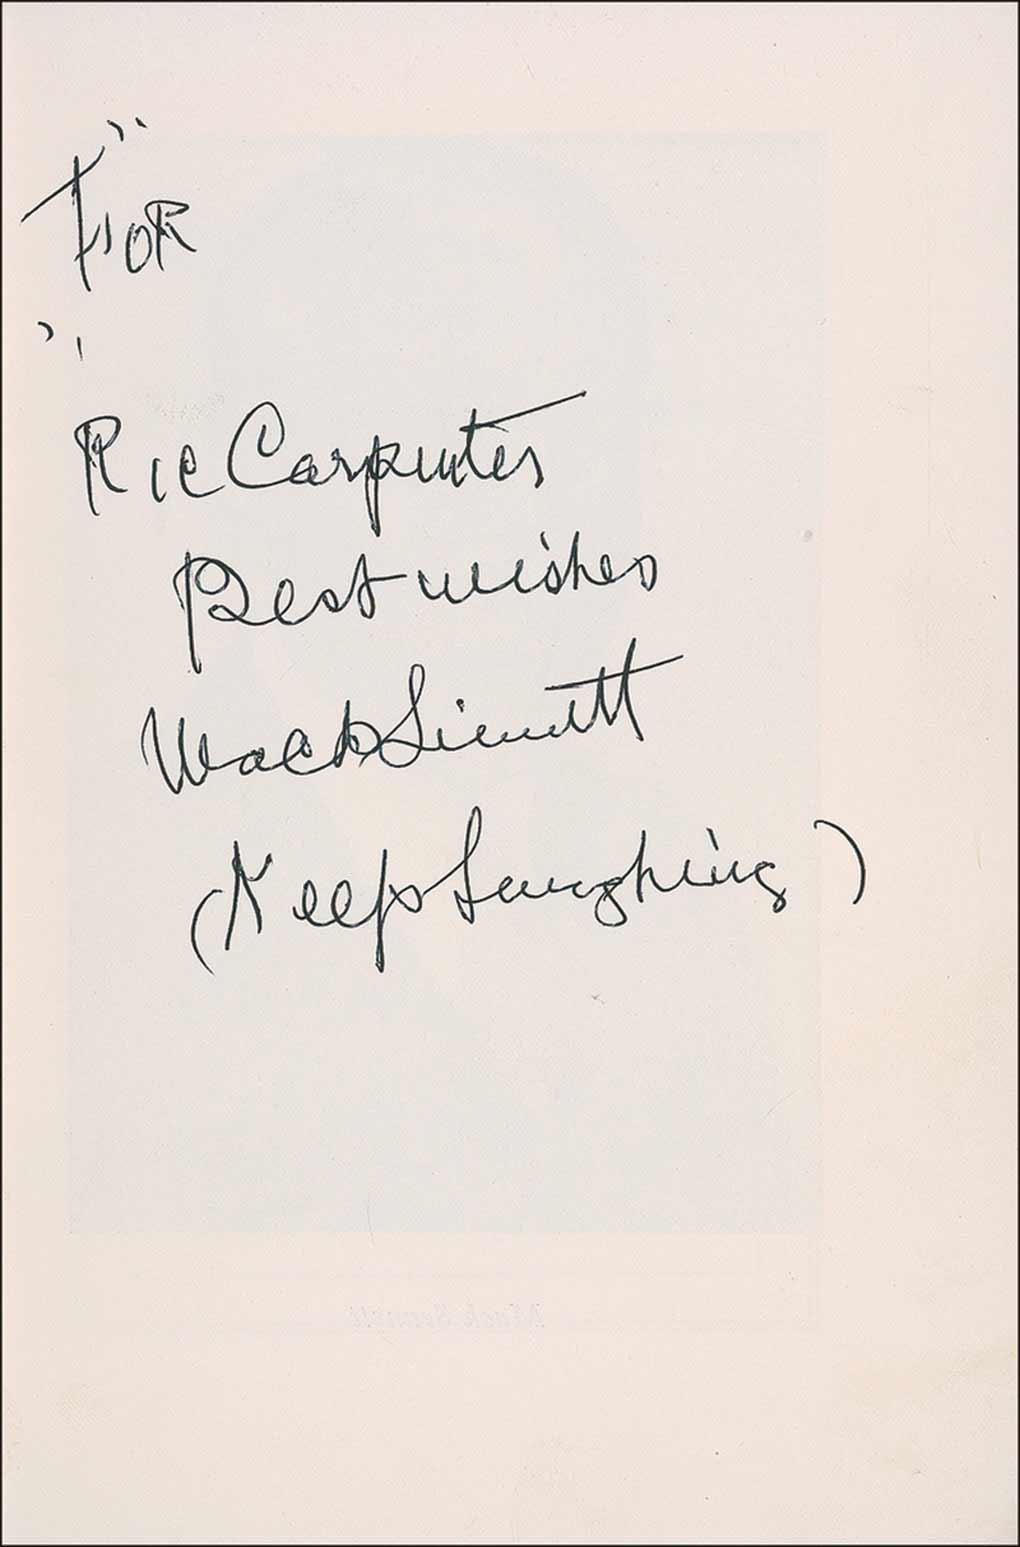 "FOR"
Ric Carpenter
Best wishes
Mack Sennett
(Keep Laughing)
Mack Sennett